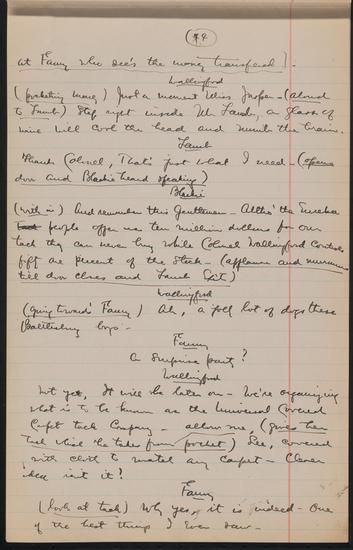 (44)
at Fanny who see's the money transfered).
Wallingford
(pocketing money) Just a moment Miss Jasper - (aloud
to Lamb) Step right inside Mr Lamb, a glass of
wine will cool the head and numb the brain.
Lamb
Thanks Colonel, That's just what I need - (opens
door and Blackie heard speaking)
Blackie
(within) And remember this Gentlemen - Altho' the Eureka
people offer us ten million dollars for our
tack they can never buy while Colonel Wallingford controls
fifty one percent of the Stock - (applause and murmurs
till door closes and Lamb Exit)
Wallingford
(going toward Fanny) Ah, a jolly lot of dogs these
Battlesburg boys -
Fanny
A Surprise party?
Wallingford
Not yet, It will be later on - We're organizing
what is to be known as the Universal Covered
Carpet tack Company - allow me, (gives her
tack which he takes from pocket) See, covered
with cloth to match any carpet - Clever
idea isn't it?
Fanny
(looks at tack) Why yes, it is indeed - One
of the best things I Ever saw -